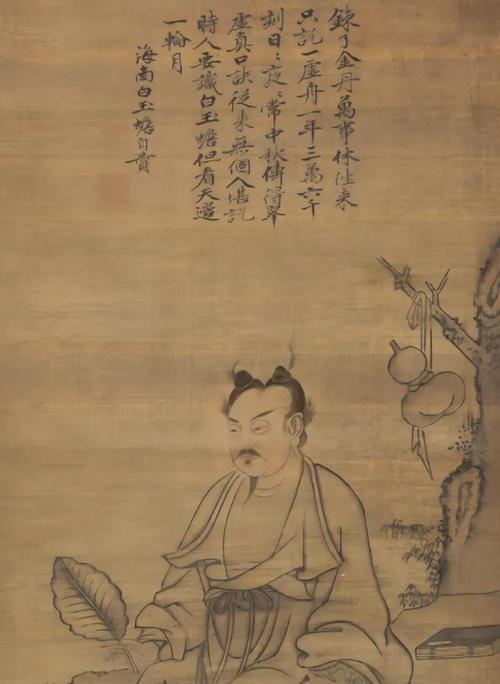 鍊了金丹萬事休徃来
只託一虛舟一年三萬六千
刻日〻夜〻常中秋傳得翠
虛真口訣從来無個人堪説
時人要識白玉蟾但看天邊
一輪月
海南白玉蟾自賛